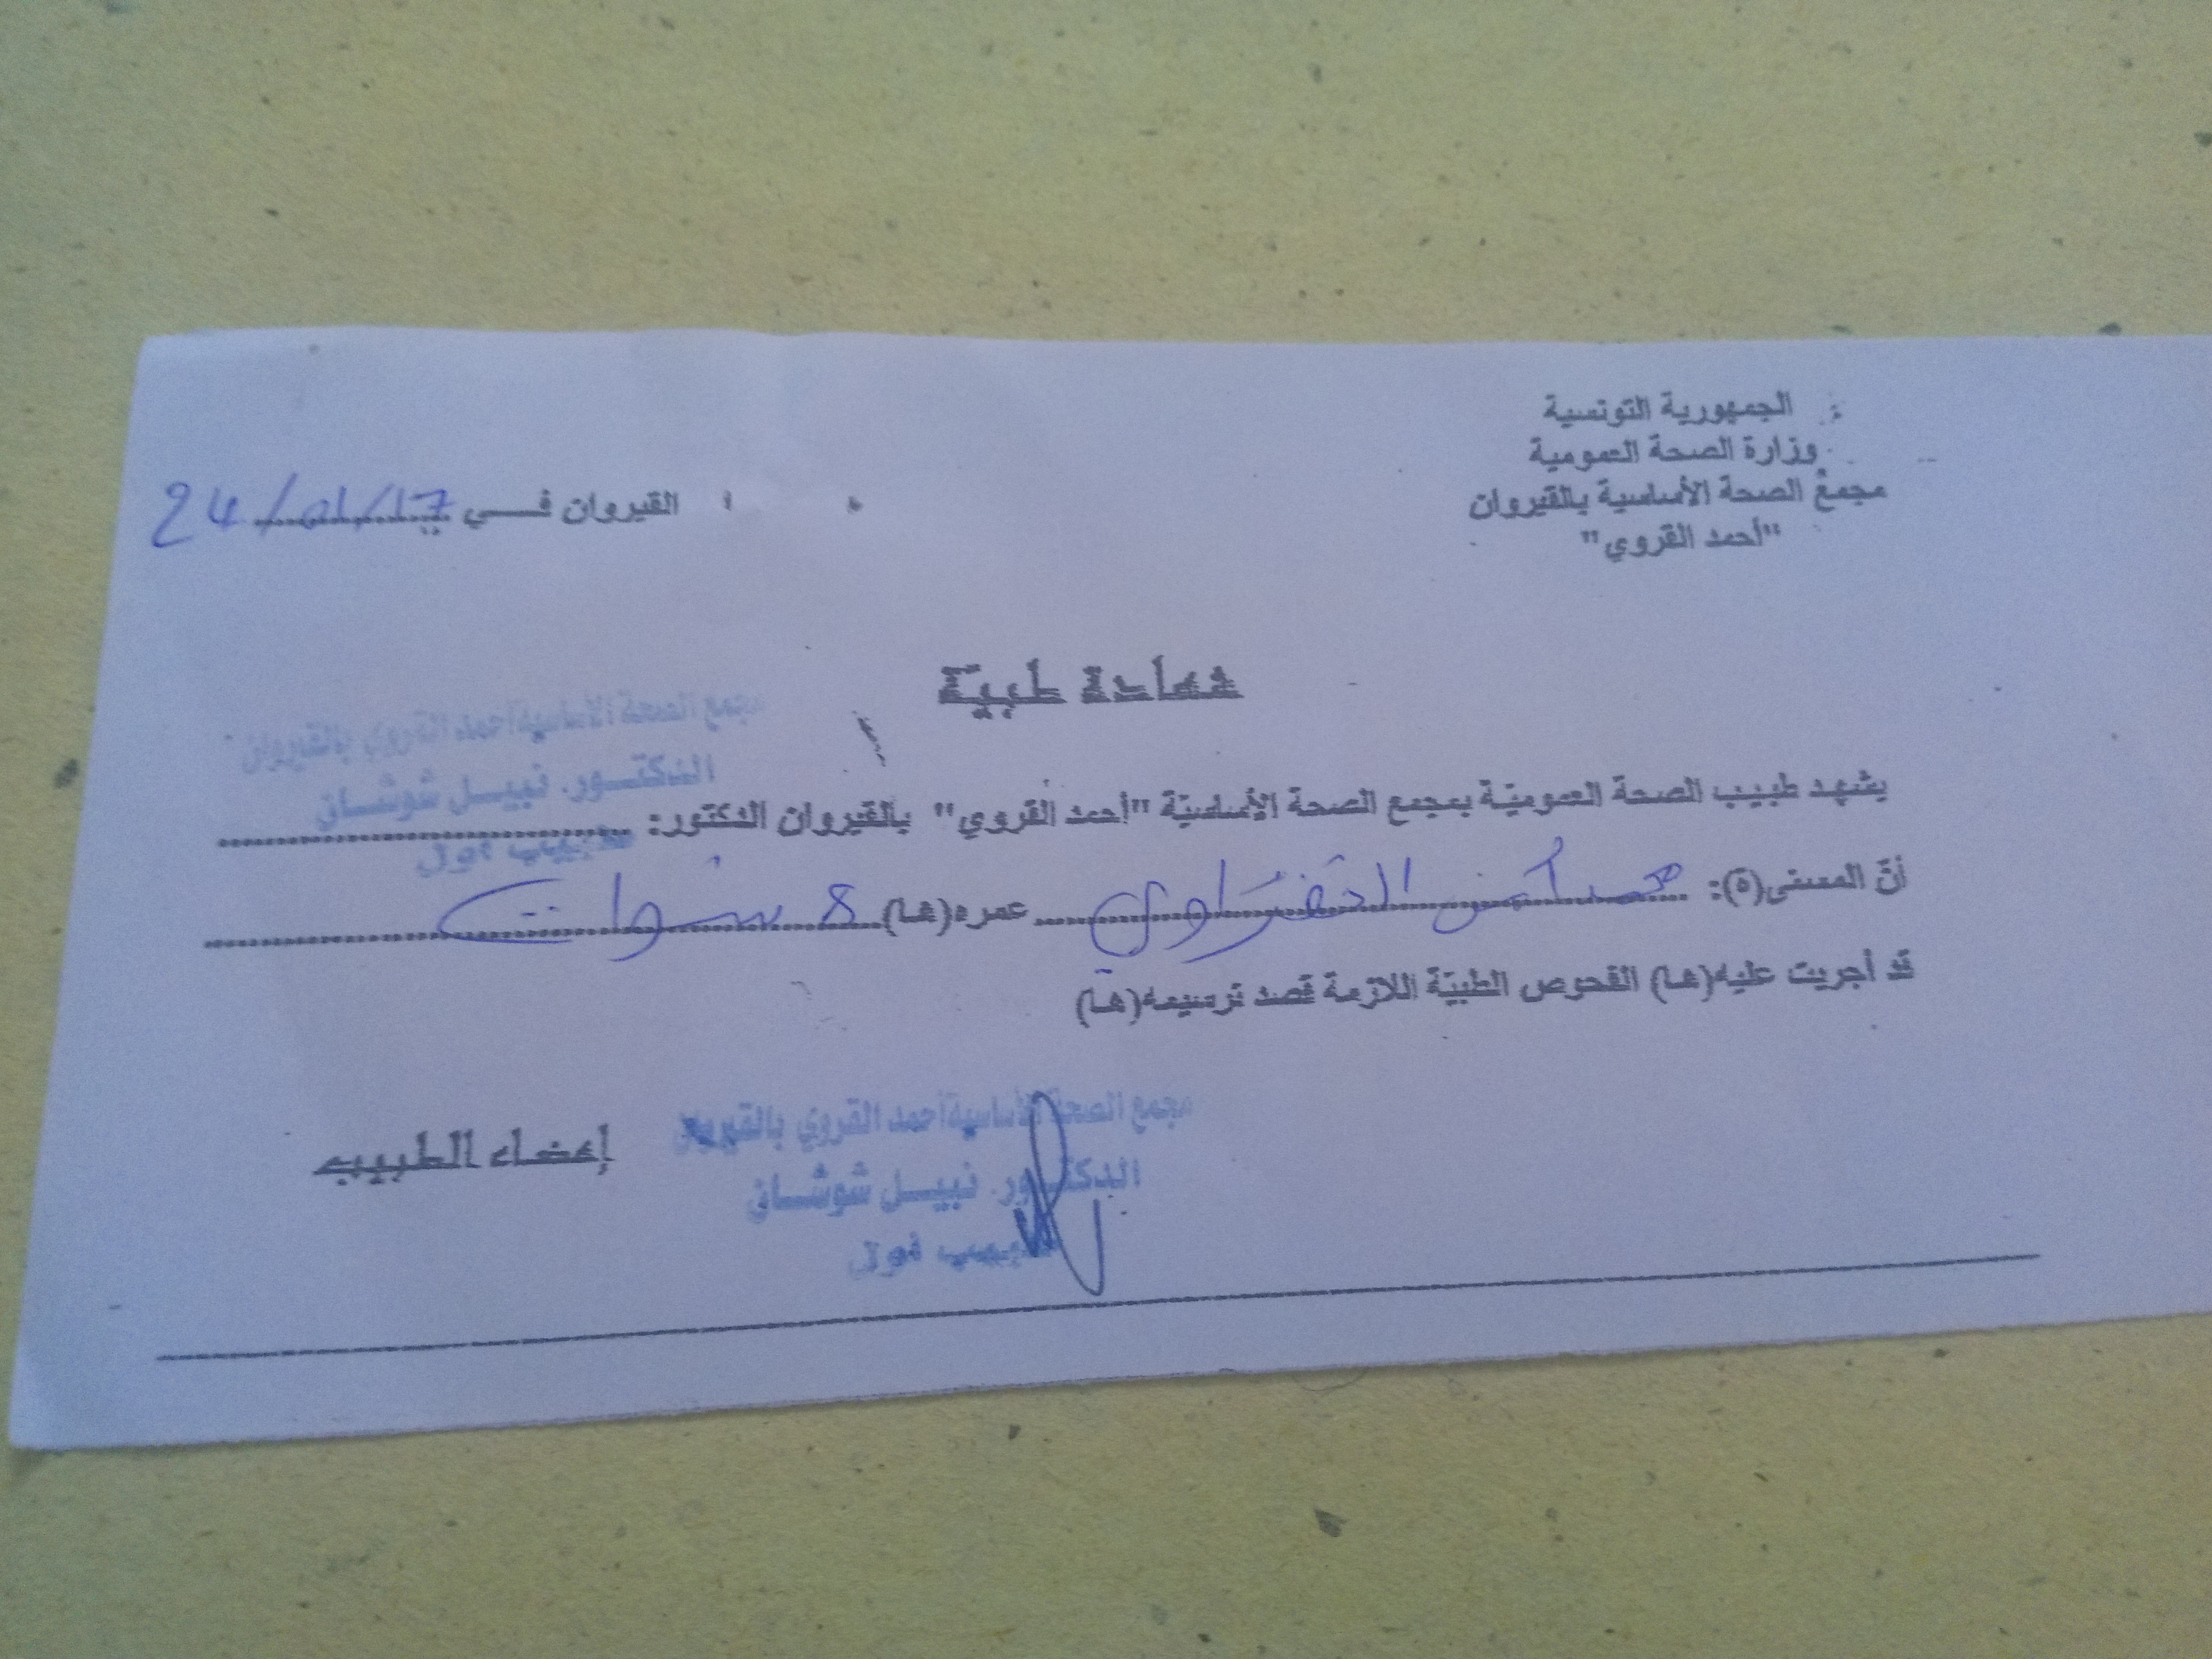 الجمهورية التونسية
وزارة الصحة العمومية
مجمع الصحة الأساسية بالقيروان
"أحمد القروي"
القيروان في 24/01/17
شهادة طبية
مجمع الصحة الأساسية أحمد القروي بالقيروان
الدكتور. نبيل شوشان
طبيب أول
يشهد طبيب الصحة العمومية بمجمع الصحة الأساسية "أحمد القروي" بالقيروان الدكتور:
أنّ المسمى(ة): محمد أمين عمره(ها) 8 سنوات
قد أجريت عليه(ها) الفحوص الطبيّة اللازمة قصد ترسيمه(ها)
مجمع الصحة الأساسية أحمد القروي بالقيروان
الدكتور. نبيل شوشان
طبيب أول
إمضاء الطبيب